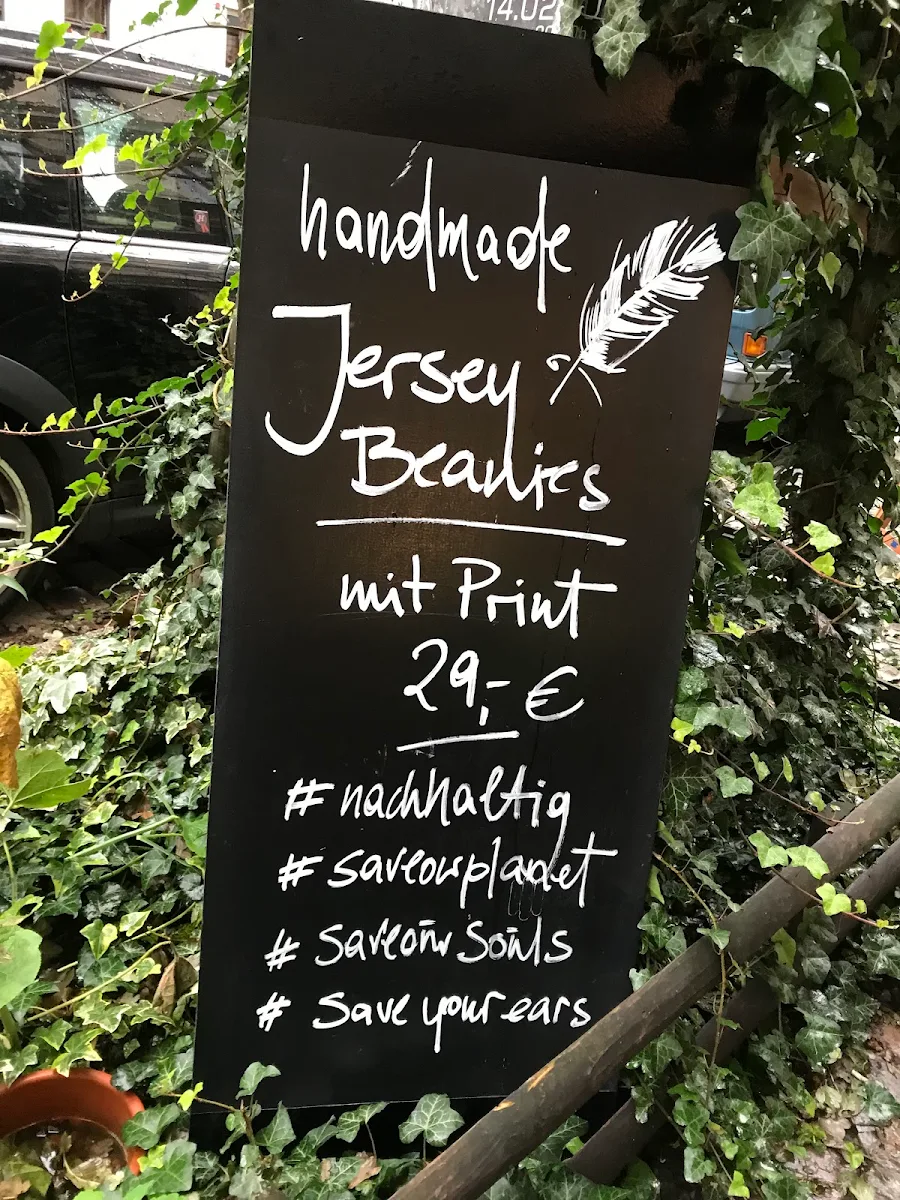 14.02
handmade
Jersey
Beanies
mit Print
29,- €
#nachhaltig
#saveourplanet
# saveour Souls
# save your ears